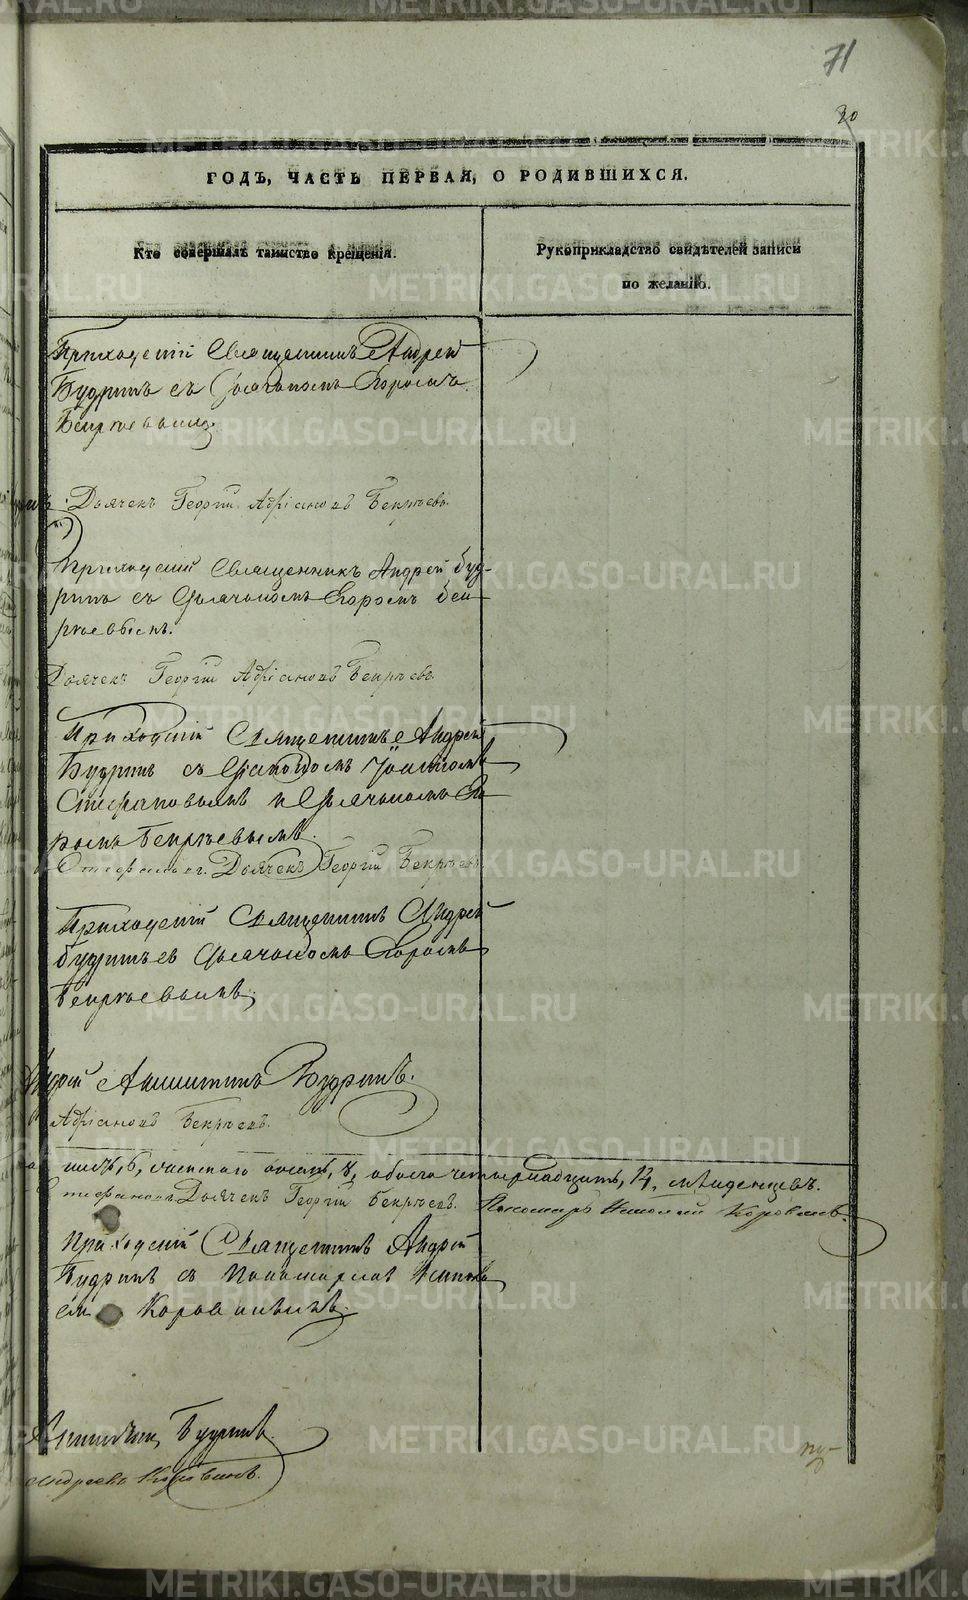 71
80
ГОДЪ, ЧАСТЬ ПЕРВАЯ, О РОДИВШИХСЯ.
Кто совершалъ таинство крещенія.
Рукоприкладство свидѣтелей записи
по желанію.
Приходскій Священникъ Андрей
Будринъ съ Дьячкомъ Егоромъ
Бекрѣевымъ
Дьячекъ Георгій Адріановъ Бекрѣевъ.
Приходскій Священникъ Андрей Буд-
ринъ съ Дьячкомъ Егоромъ Бек-
рѣевымъ.
Дьячекъ Георгій Адріановъ Бекрѣевъ
Приходскій Священникъ Андрей
Будринъ съ Діакономъ Іоанномъ
Стефановымъ и Дьячкомъ Его-
ромъ Бекрѣевымъ.
Стефановъ. Дьячекъ Георгій Бекрѣевъ
Приходскій Священникъ Андрей
Будринъ съ Дьячкомъ Егоромъ
Бекрѣевымъ.
Андрей Аникитинъ Будринъ.
Адріановъ Бекрѣевъ.
шесть, 6, женскаго восемь, 8, обоего четырнадцать, 14, младенцевъ.
Стефановъ Дьячекъ Георгій Бекрѣевъ. Пономарь Николай Коровинъ.
Приходскій Священникъ Андрей
Будринъ съ Пономаремъ Никола-
емъ Коровинымъ.
Будринъ.
Андреевъ Коровинъ.
METRIKI.GASO-URAL.RU